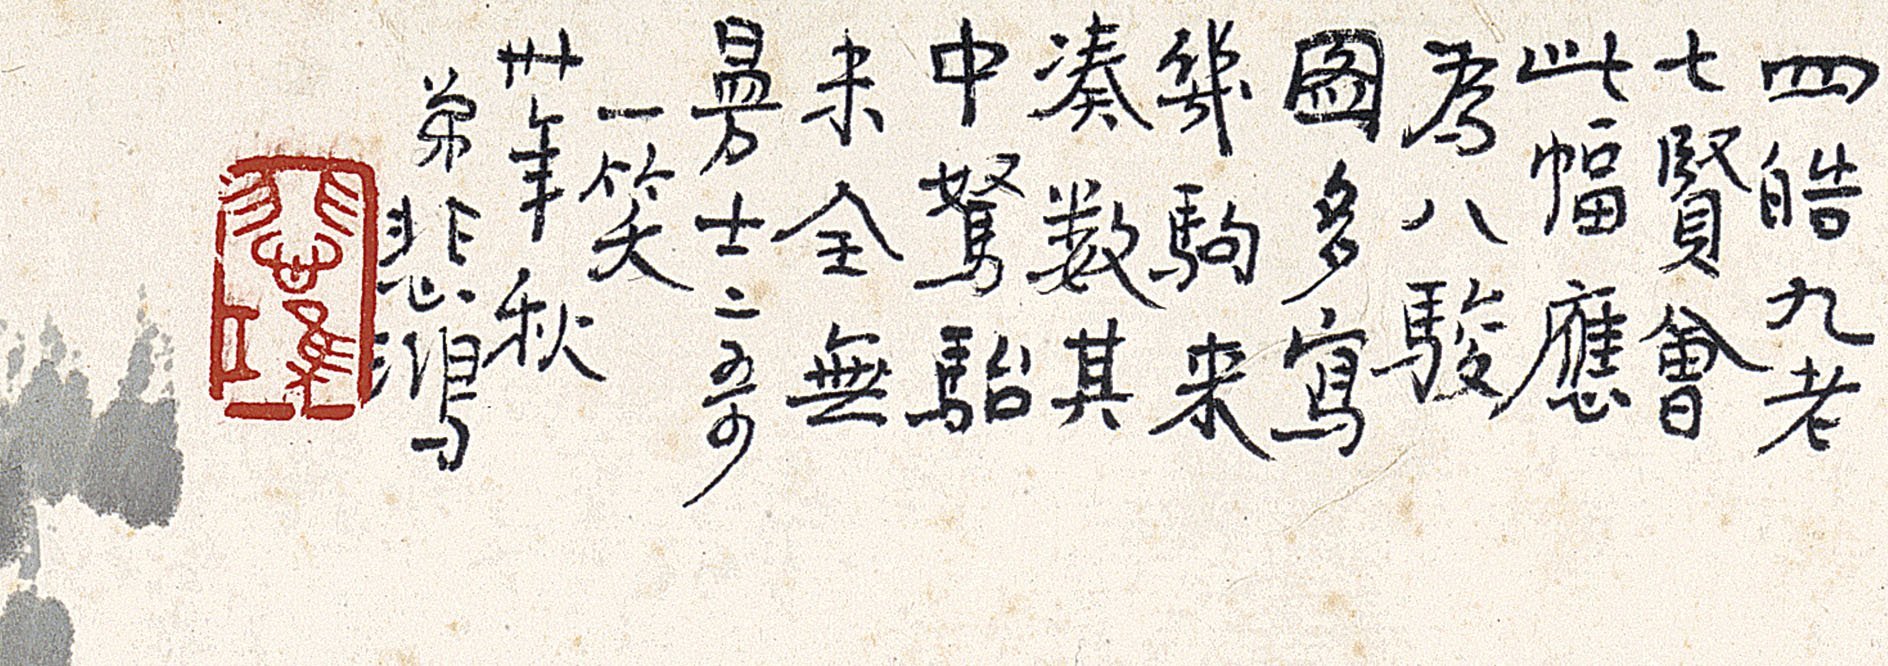 四皓九老
七賢會
此幅應
為八駿
圖多寫
幾駒来
湊數其
中駑駘
未全無
昜士二哥
一笑
卅年秋
弟悲鴻